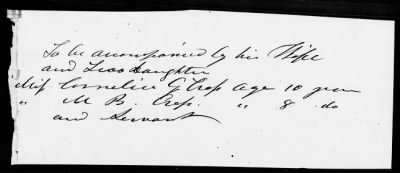 To be accompanied by his Wife
and Two Daughters
Miss Cornelia G Crop age 10 years
" M B. Crop. " 8 do
and Servant